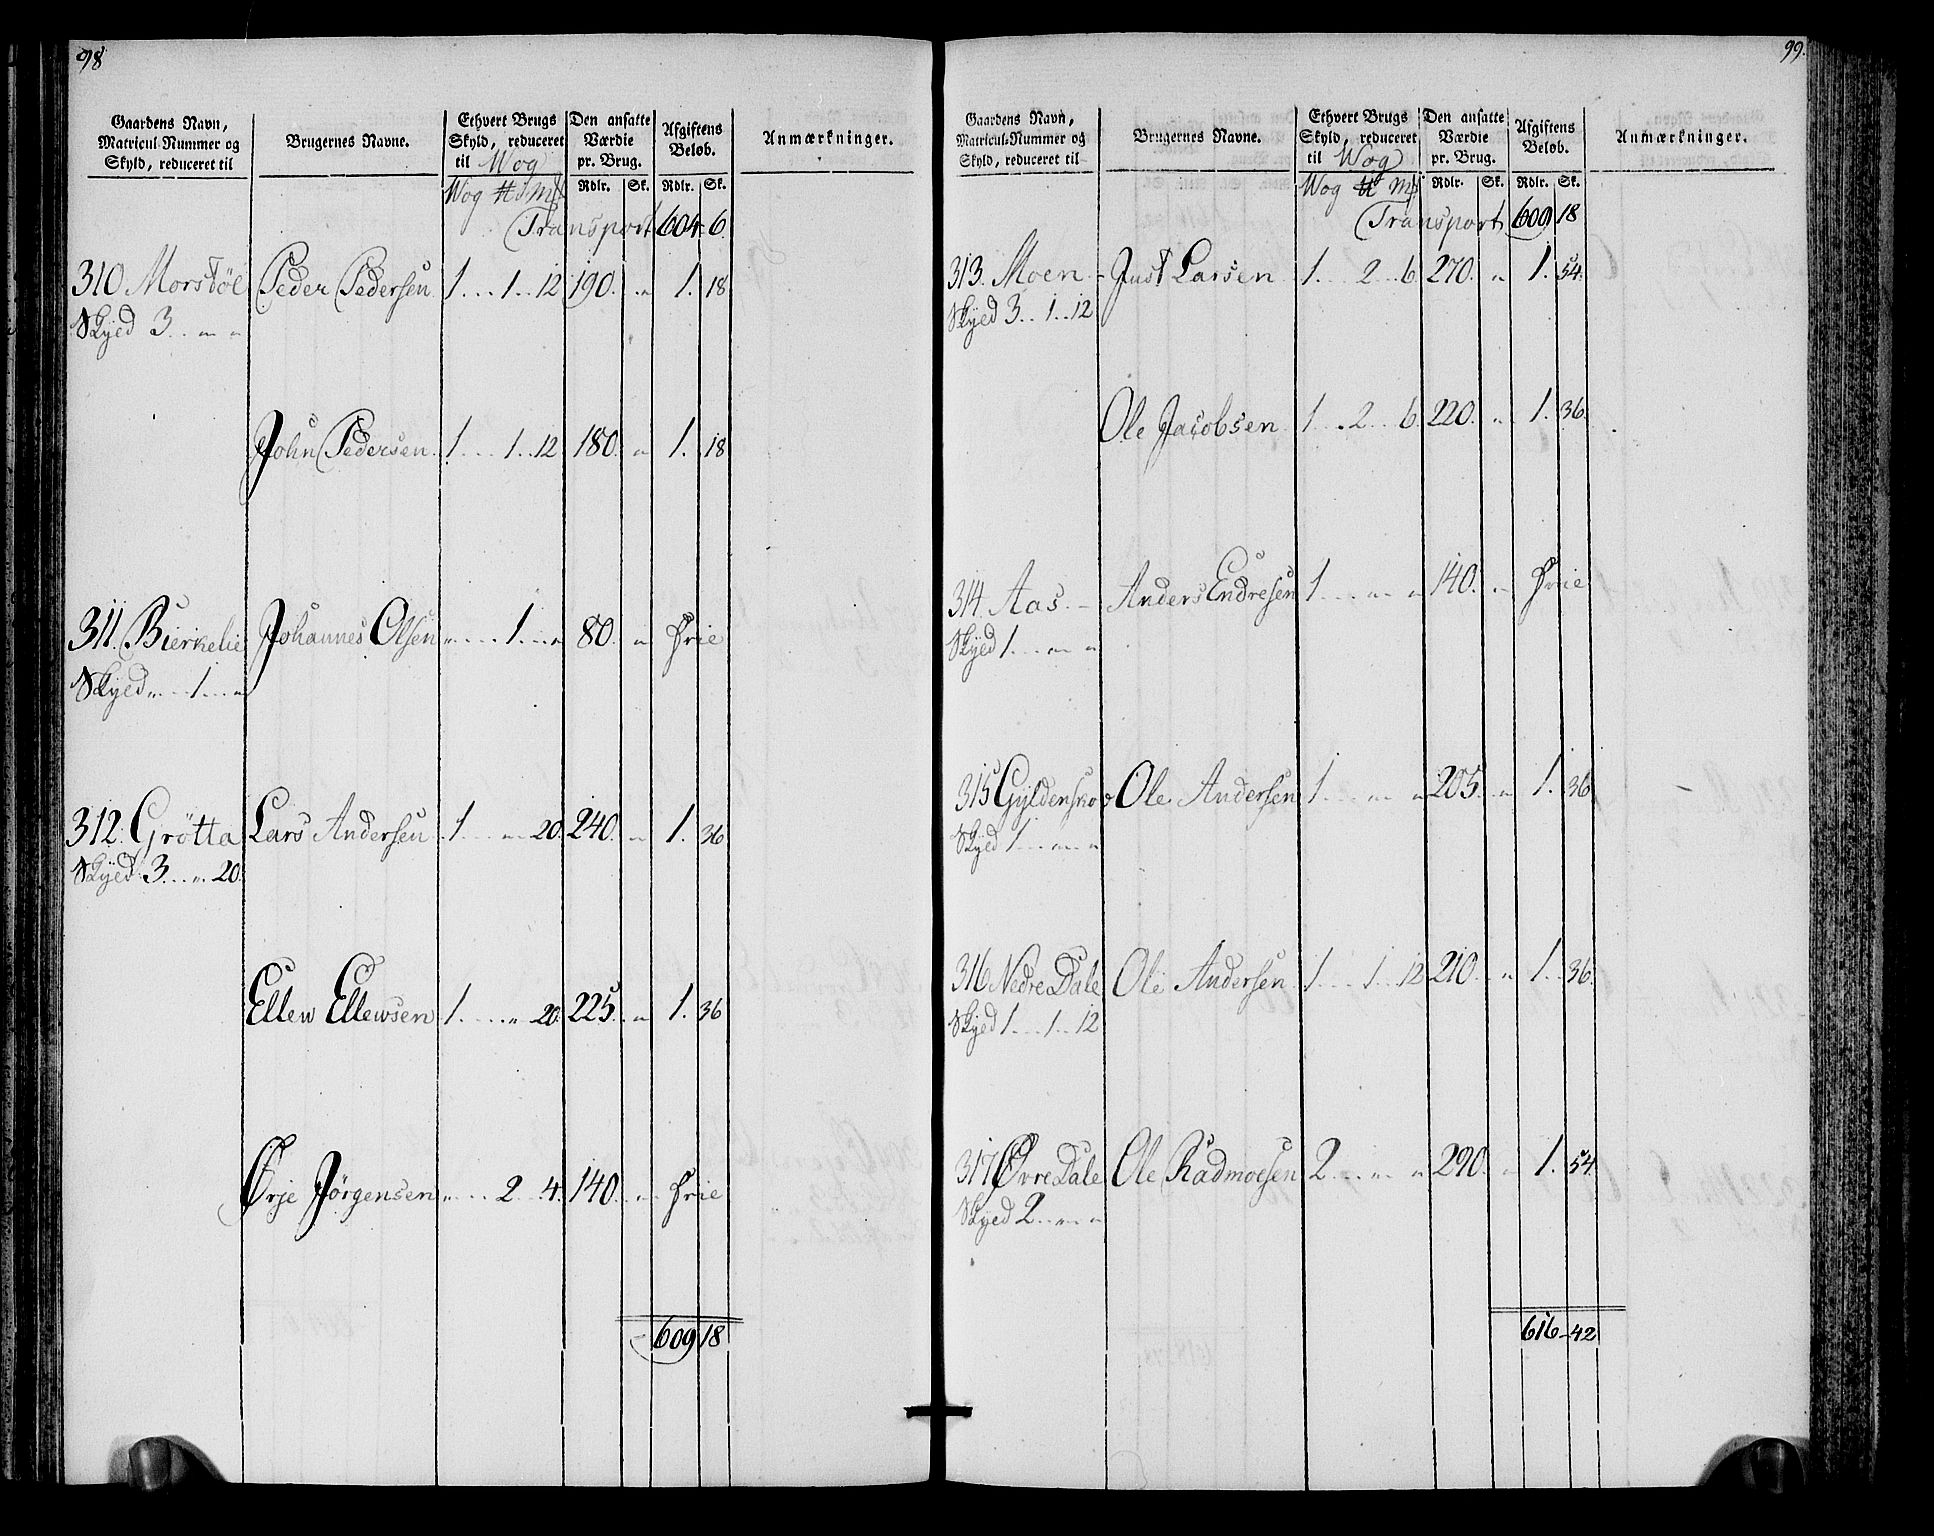 98
Gaardens Navn, Matricul-Nummer og Skyld, reduceret til
Brugernes Navne.
Ethvert Brugs Skyld, reduceret til Wog
Den ansatte Værdie pr. Brug.
Afgiftens Beløb.
Anmærkninger.
Wog ℔ Mk Rdlr. Sk. Rdlr. Sk.
Transport 604 6
310 Morstöl Peder Pedersen 1 .... 1 .. 12 190. " 1. 18
Skyed 3 .. " "
John Pedersen. 1 .... 1 .. 12 180. " 1. 18
311. Bierkelie Johannes Olsen " .... 1 ... " 80. " Frie
Skyed " ... 1 ... "
312. Grötta Lars Andersen 1 .... " 20. 240. " 1. 36
Skyed 3 ... " 20.
Ellew Ellewsen 1 ..... " 20. 225. " 1. 36
Ørje Jörgensen " .... 2 .. 4. 140. " Frie
609 18
99.
Gaardens Navn, Matricul-Nummer og Skyld, reduceret til
Brugernes Navne.
Ethvert Brugs Skyld, reduceret til Wog
Den ansatte Værdie pr. Brug.
Afgiftens Beløb.
Anmærkninger.
Wog ℔ Mk Rdlr. Sk. Rdlr. Sk.
Transport 609 18
313. Moen - Just Larsen 1 .... 2 .. 6. 270. " 1. 54.
Skyed 3 .. 1 .. 12
Ole Jacobsen 1 .. 2 ... 6. 220. " 1. 36.
314. Aas. - Anders Endresen 1 .... " " 140. " Frie
Skyed 1 .... " "
315 Gyldenskoo Ole Andersen 1 .... " " 205. " 1. 36
Skyed 1 .... " "
316 Nedre Dale Ole Andersen 1 .... 1 .. 12 210. " 1. 36.
Skyed 1 .... 1 .. 12
317 Øvre Dale Ole Radmoesen 2 .... " " 290. " 1. 54.
Skyed 2 ... " "
616 42